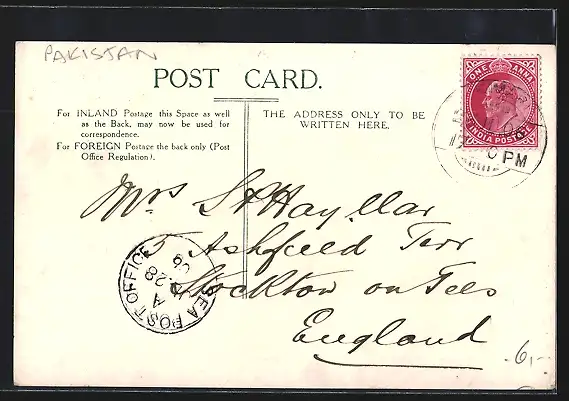 PAKISTAN
POST CARD.
ONE ANNA
INDIA POSTAGE
PM
For INLAND Postage this Space as well
as the Back, may now be used for
correspondence.
For FOREIGN Postage the back only (Post
Office Regulation).
THE ADDRESS ONLY TO BE
WRITTEN HERE.
Mrs
5 Ashfield Terr
Stockton on Tees
England
SEA POST OFFICE
A
28
6,-